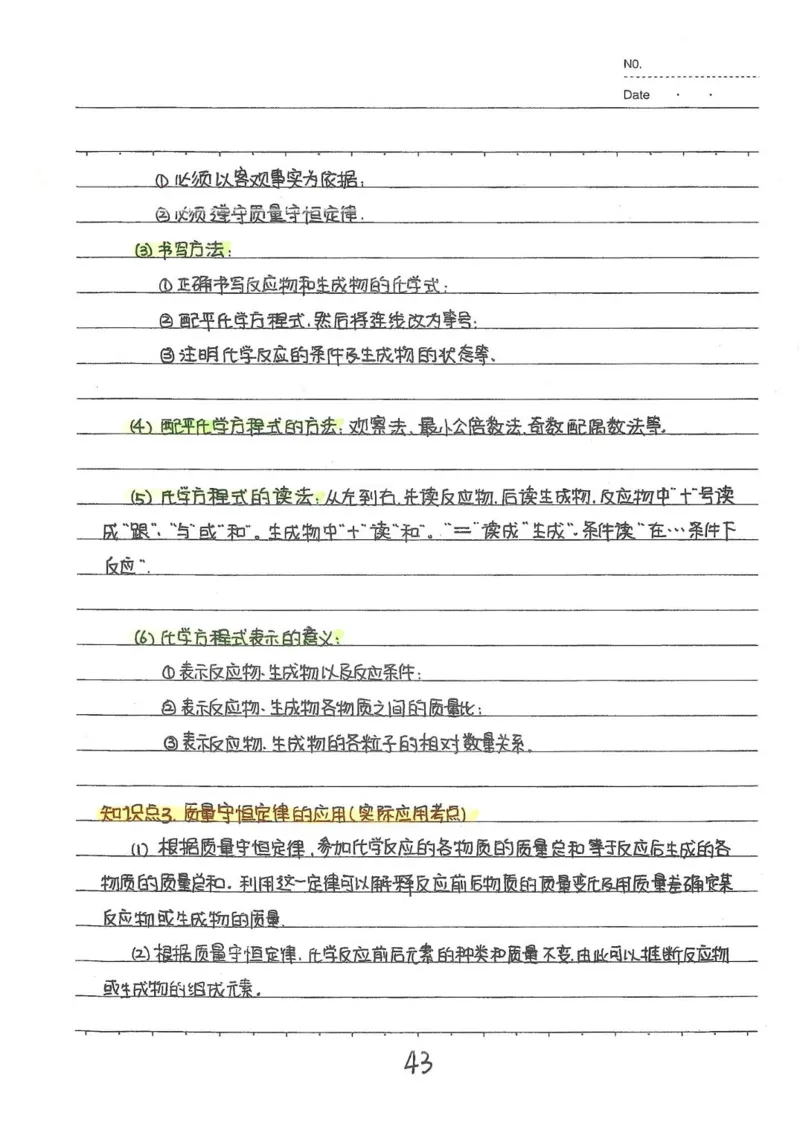 No.
Date · ·
① 必须以客观事实为依据;
② 必须遵守质量守恒定律.
(3) 书写方法:
① 正确书写反应物和生成物的化学式;
② 配平化学方程式,然后将连线改为等号;
③ 注明化学反应的条件及生成物的状态等、
(4) 配平化学方程式的方法: 观察法、最小公倍数法、奇数配偶数法等。
(5) 化学方程式的读法: 从左到右,先读反应物,后读生成物,反应物中"+"号读
成"跟"、"与"或"和"。生成物中"+"读"和"。"="读成"生成"。条件读"在…条件下
反应".
(6) 化学方程式表示的意义:
① 表示反应物、生成物以及反应条件;
② 表示反应物、生成物各物质之间的质量比;
③ 表示反应物、生成物的各粒子的相对数量关系。
知识点3. 质量守恒定律的应用(实际应用考点)
(1) 根据质量守恒定律,参加化学反应的各物质的质量总和等于反应后生成的各
物质的质量总和. 利用这一定律可以解释反应前后物质的质量变化及用质量差确定某
反应物或生成物的质量.
(2) 根据质量守恒定律,化学反应前后元素的种类和质量不变,由此可以推断反应物
或生成物的组成元素。
43